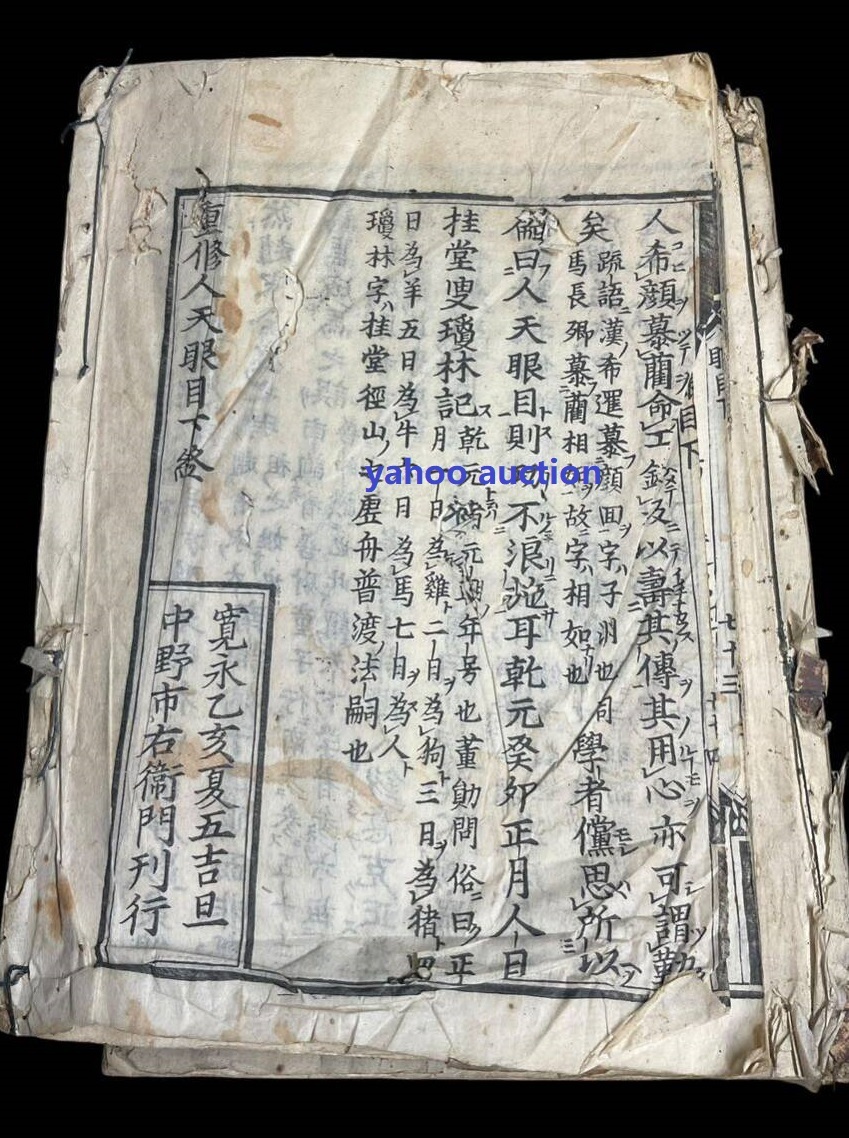 人希顔慕藺命工鋟 及以壽其傳其用心亦可謂勤
矣
疏語漢希選慕顔回字子淵也司
馬長卿慕藺相 故字相如也
學者儻思所以
曰人天眼目則功不浪施耳乾元癸卯正月人日
桂堂叟瓊林記
乾元 元 年号也董勛問俗曰正
月一日為雞二日為狗三日為猪四
日為羊五日為牛六日為馬七日為人
瓊林字桂堂徑山 虚舟普渡法嗣也
重修人天眼目下終
寛永乙亥夏五吉旦
中野市右衛門刊行
眼目下
七十三
yahoo auction